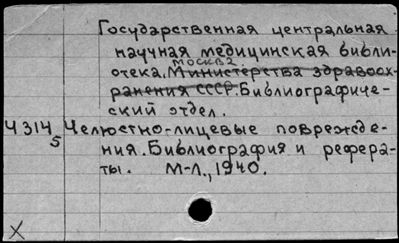 Государственная центральная
научная медицинская библи-
москва.
отека. Министерства здравоох-
ранения СССР. Библиографиче-
ский отдел.
Ч 314 Челюстно-лицевые поврежде-
5
ния. Библиография и рефера-
ты. М-Л., 1940.
X